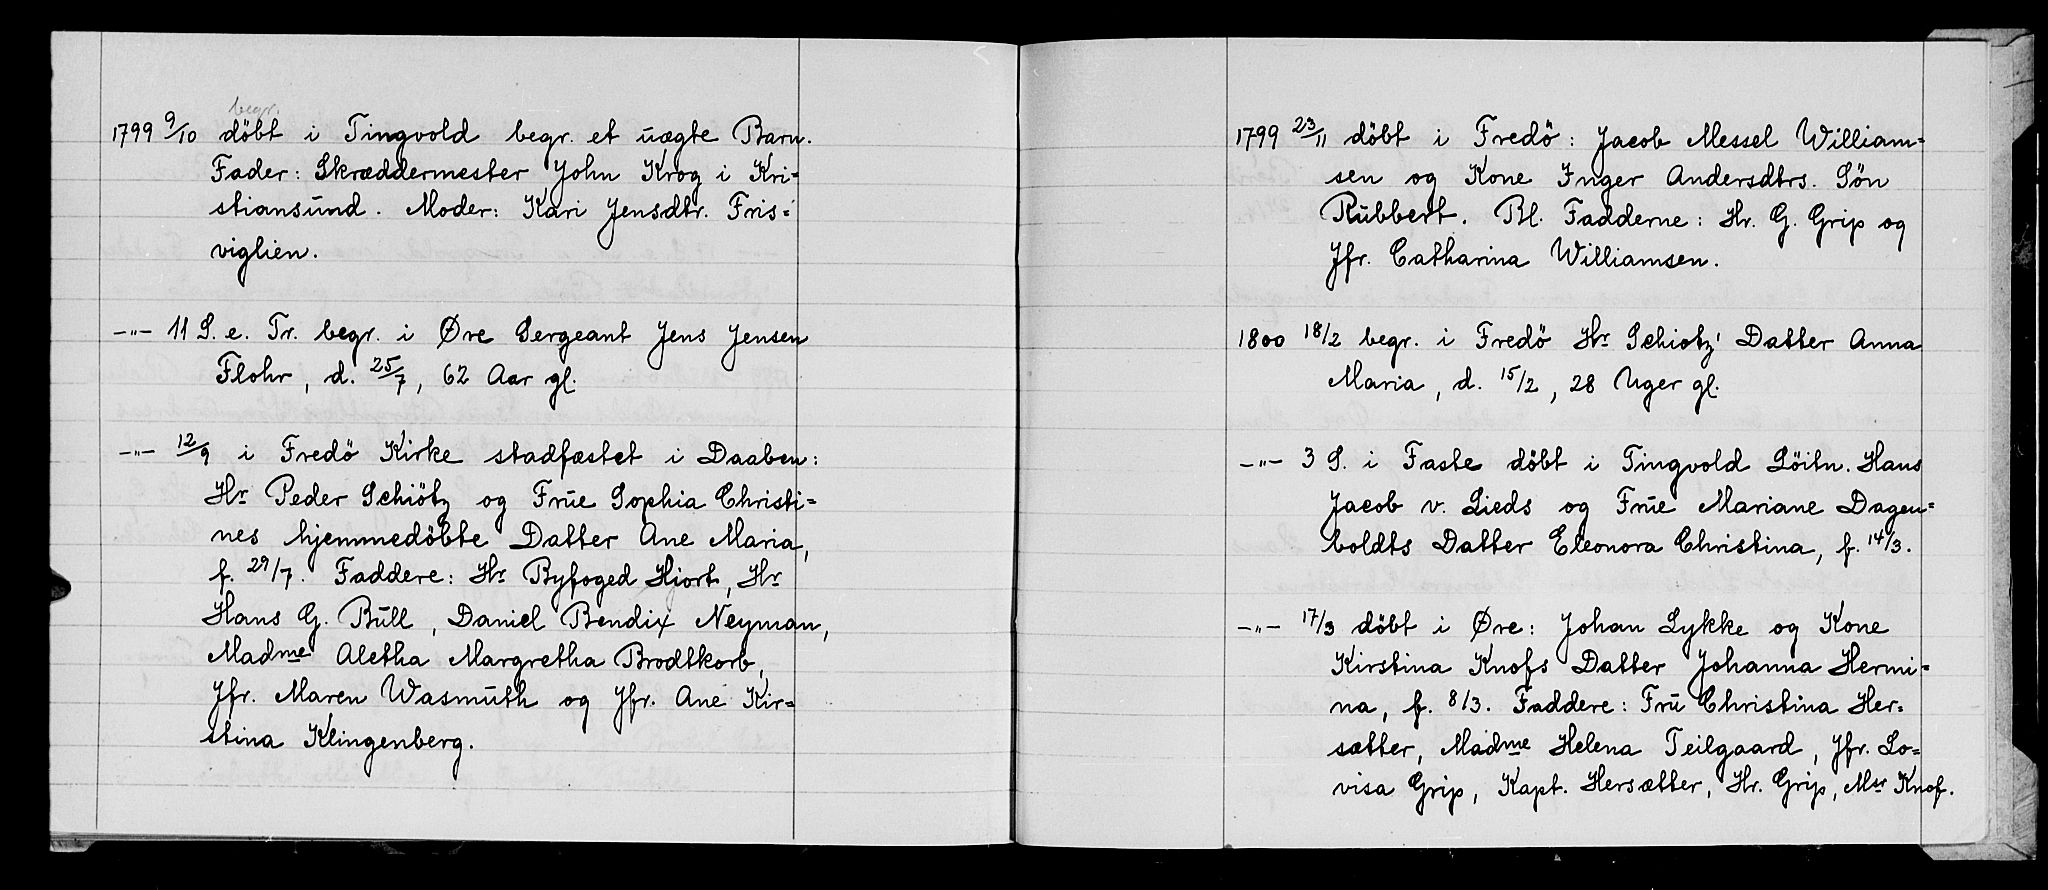 begr.
1799 9/10 döbt i Tingvold begr. et uægte Barn.
Fader: Skræddermester John Krog i Kri=
stiansund. Moder: Kari Jensdtr. Fris=
viglien.
-"- 11 S. e. Tr. begr. i Øre Sergeant Jens Jensen
Flohr, d. 25/7, 62 Aar gl.
-"- 12/9 i Fredö Kirke stadfæstet i Daaben:
Hr Peder Schiötz og Frue Sophia Christi=
nes hjemmedöbte Datter Ane Maria,
f. 29/7. Faddere: Hr Byfoged Hjort, Hr
Hans G. Bull, Daniel Bendix Neyman,
Madme Aletha Margretha Brodtkorb,
Jfr. Maren Wasmuth og Jfr. Ane Kir=
stina Klingenberg.
1799 23/11 döbt i Fredö: Jacob Messel William=
sen og Kone Inger Andersdtrs. Sön
Rubbert. Bl. Fadderne: Hr. G. Grip og
Jfr. Catharina Williamsen.
1800 18/2 begr. i Fredö Hr Schiotz' Datter Anna
Maria, d. 15/2, 28 Uger gl.
-"- 3 S. i Faste döbt i Tingvold Löitn. Hans
Jacob v. Lieds og Frue Mariane Dagen=
boldts Datter Eleonora Christina, f. 14/3.
-"- 17/3 döbt i Øre: Johan Lykke og Kone
Kirstina Knofs Datter Johanna Hermi=
na, f. 8/3. Faddere: Fru Christina Her=
sætter, Madme Helena Teilgaard, Jfr. Lo=
visa Grip, Kapt. Hersætter, Hr. Grip, Msr Knof.